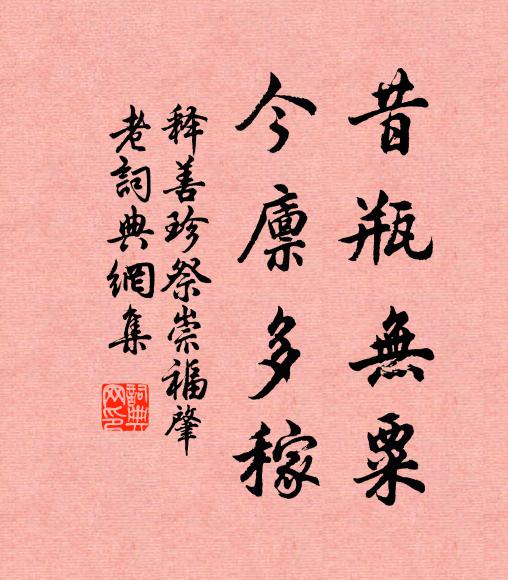 昔瓶無粟
今廪多稼
释善珍祭崇福肇
老詞典網集
詞典网印